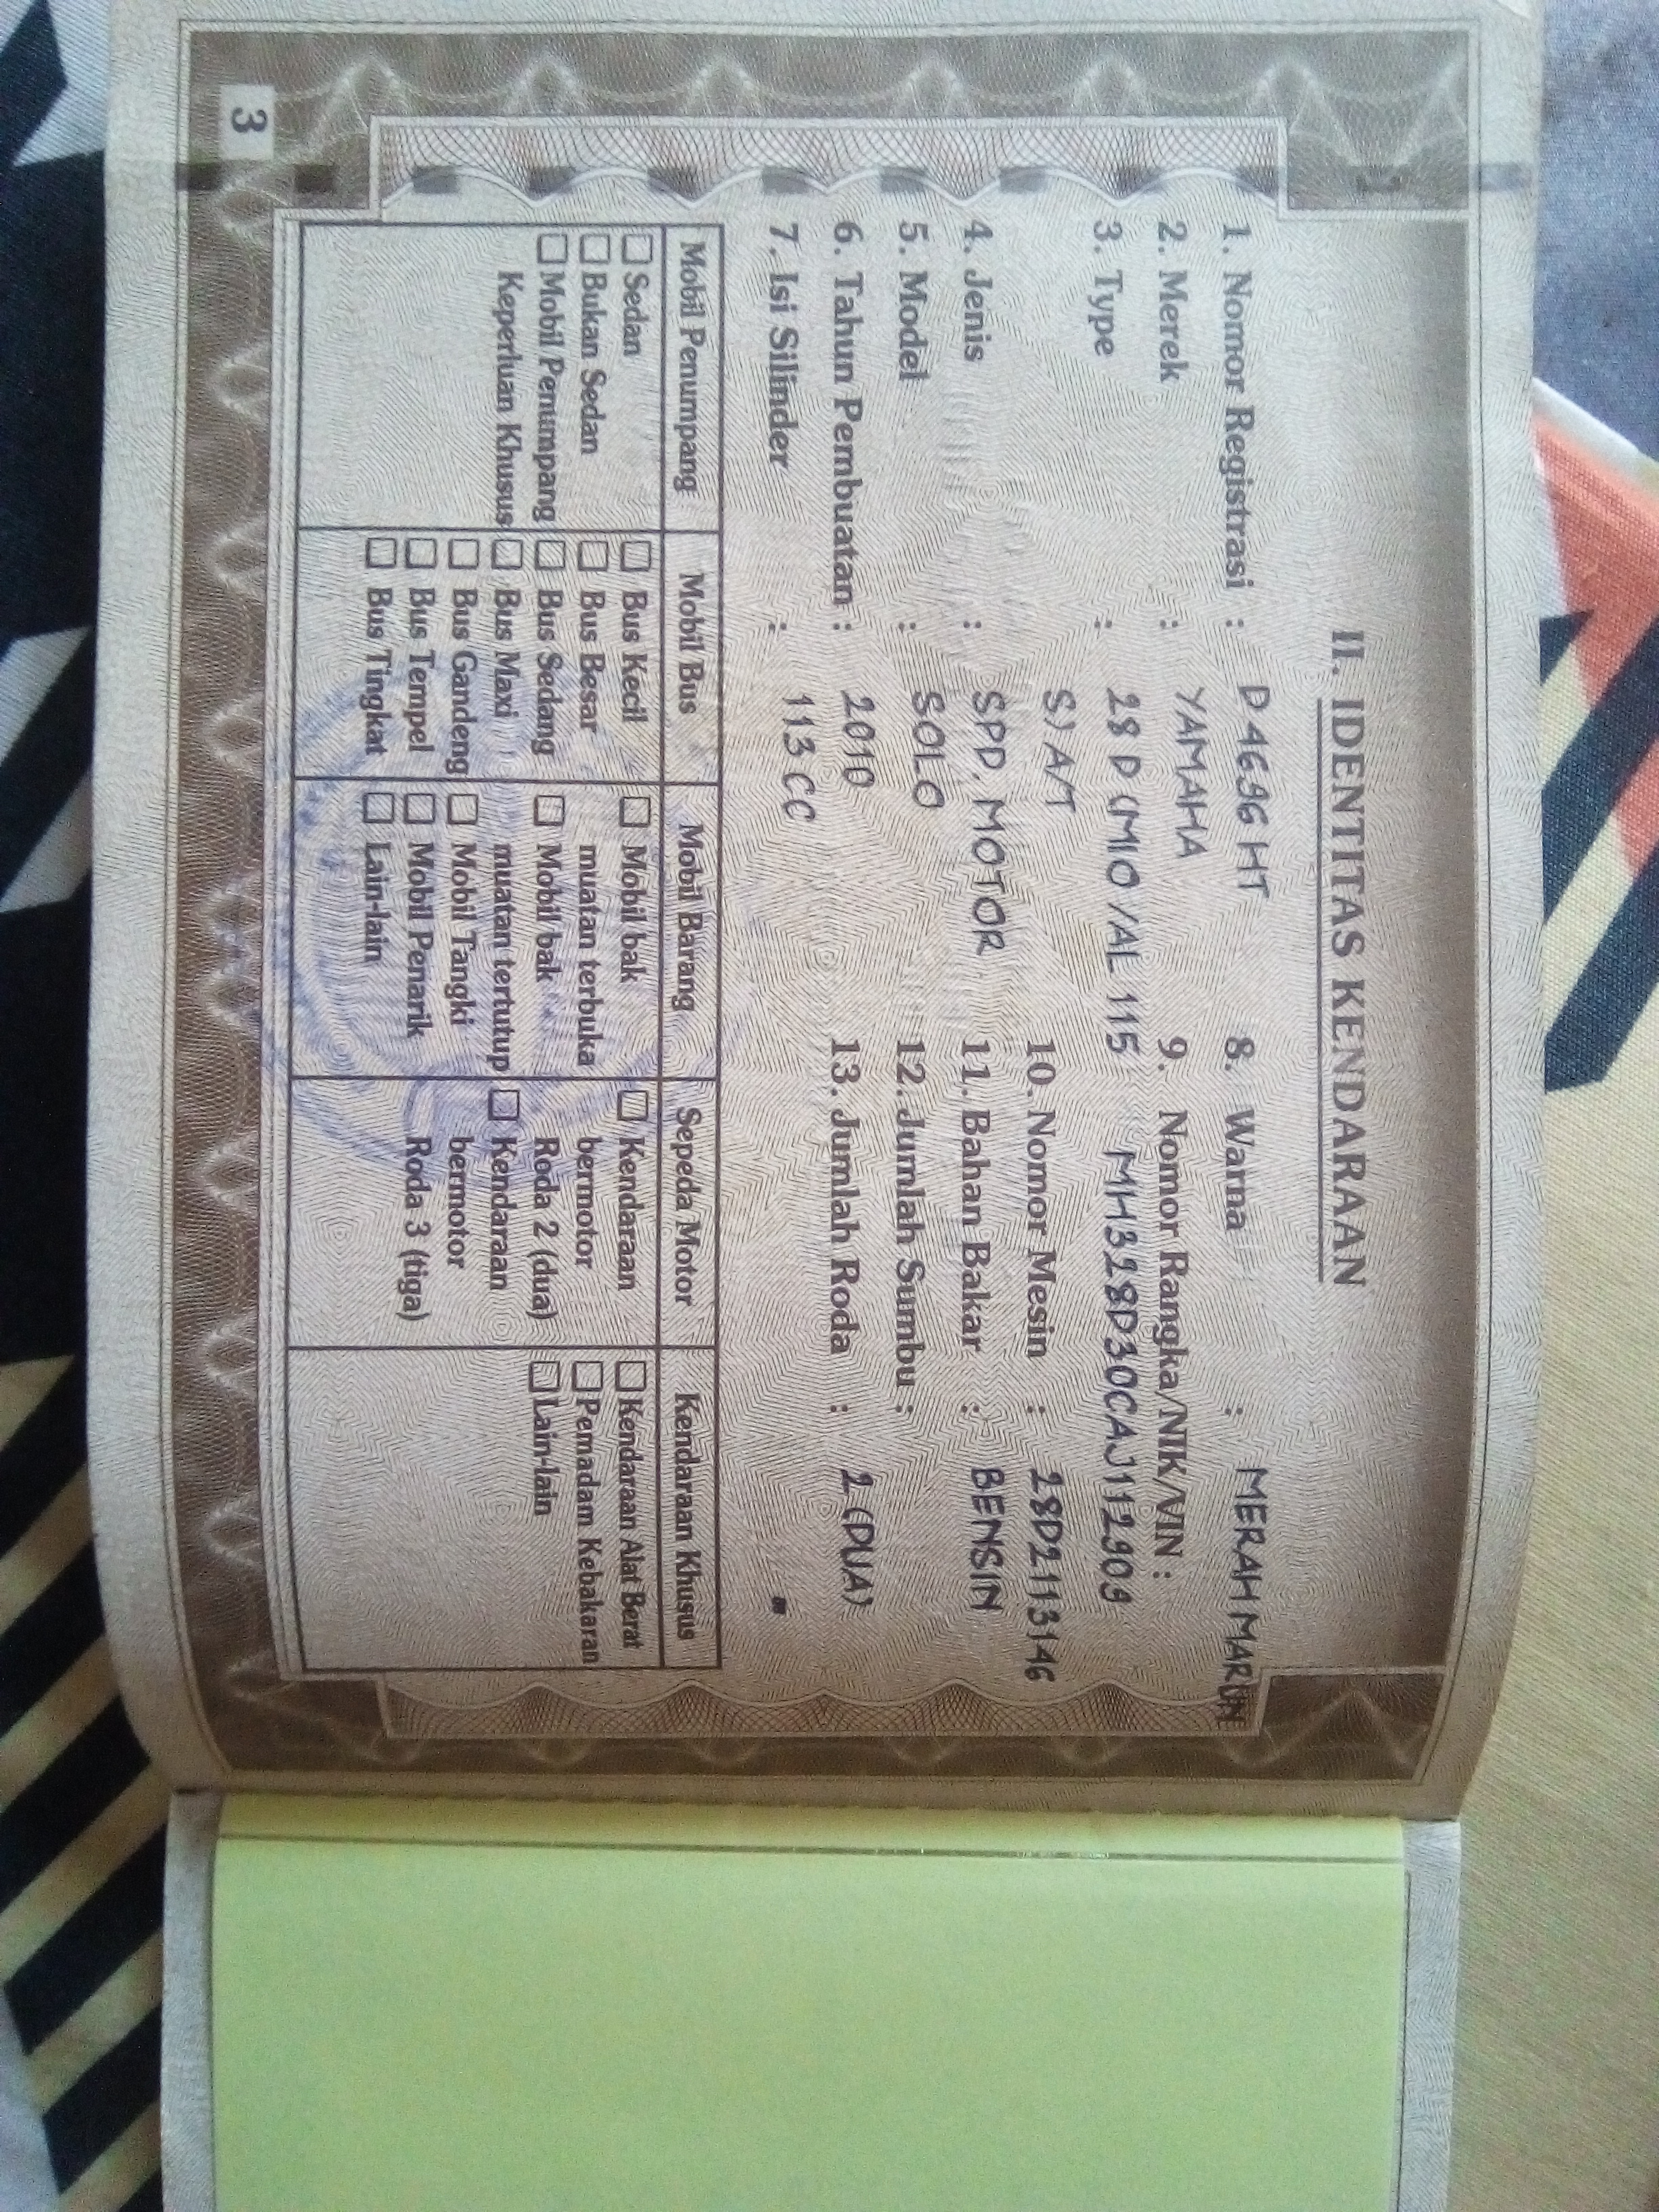 II. IDENTITAS KENDARAAN
1. Nomor Registrasi : D 4696 HT
2. Merek : YAMAHA
3. Type : 28 D (MIO /AL 115
S) A/T
4. Jenis : SPD. MOTOR
5. Model : SOLO
6. Tahun Pembuatan : 2010
7. Isi Silinder : 113 CC
8. Warna : MERAH MARUN
9. Nomor Rangka/NIK/VIN :
MH328D30CAJ112909
10. Nomor Mesin : 28D2113146
11. Bahan Bakar : BENSIN
12. Jumlah Sumbu :
13. Jumlah Roda : 2 (DUA)
Mobil Penumpang
Sedan
Bukan Sedan
Mobil Penumpang
Keperluan Khusus
Mobil Bus
Bus Kecil
Bus Besar
Bus Sedang
Bus Maxi
Bus Gandeng
Bus Tempel
Bus Tingkat
Mobil Barang
Mobil bak
muatan terbuka
Mobil bak
muatan tertutup
Mobil Tangki
Mobil Penarik
Lain-lain
Sepeda Motor
Kendaraan
bermotor
Roda 2 (dua)
Kendaraan
bermotor
Roda 3 (tiga)
Kendaraan Khusus
Kendaraan Alat Berat
Pemadam Kebakaran
Lain-lain
3